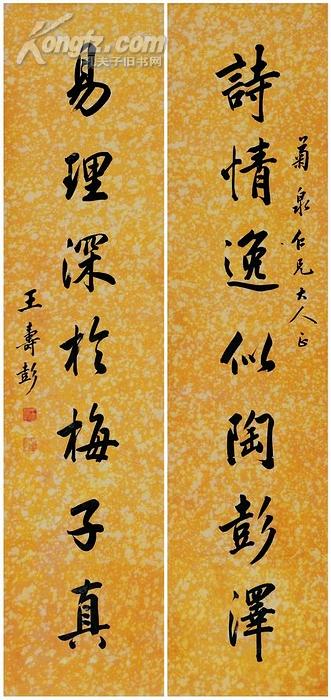 菊泉仁兄大人正
詩情逸似陶彭澤
易理深於梅子真
王壽彭
Kongfz.com
孔夫子旧书网